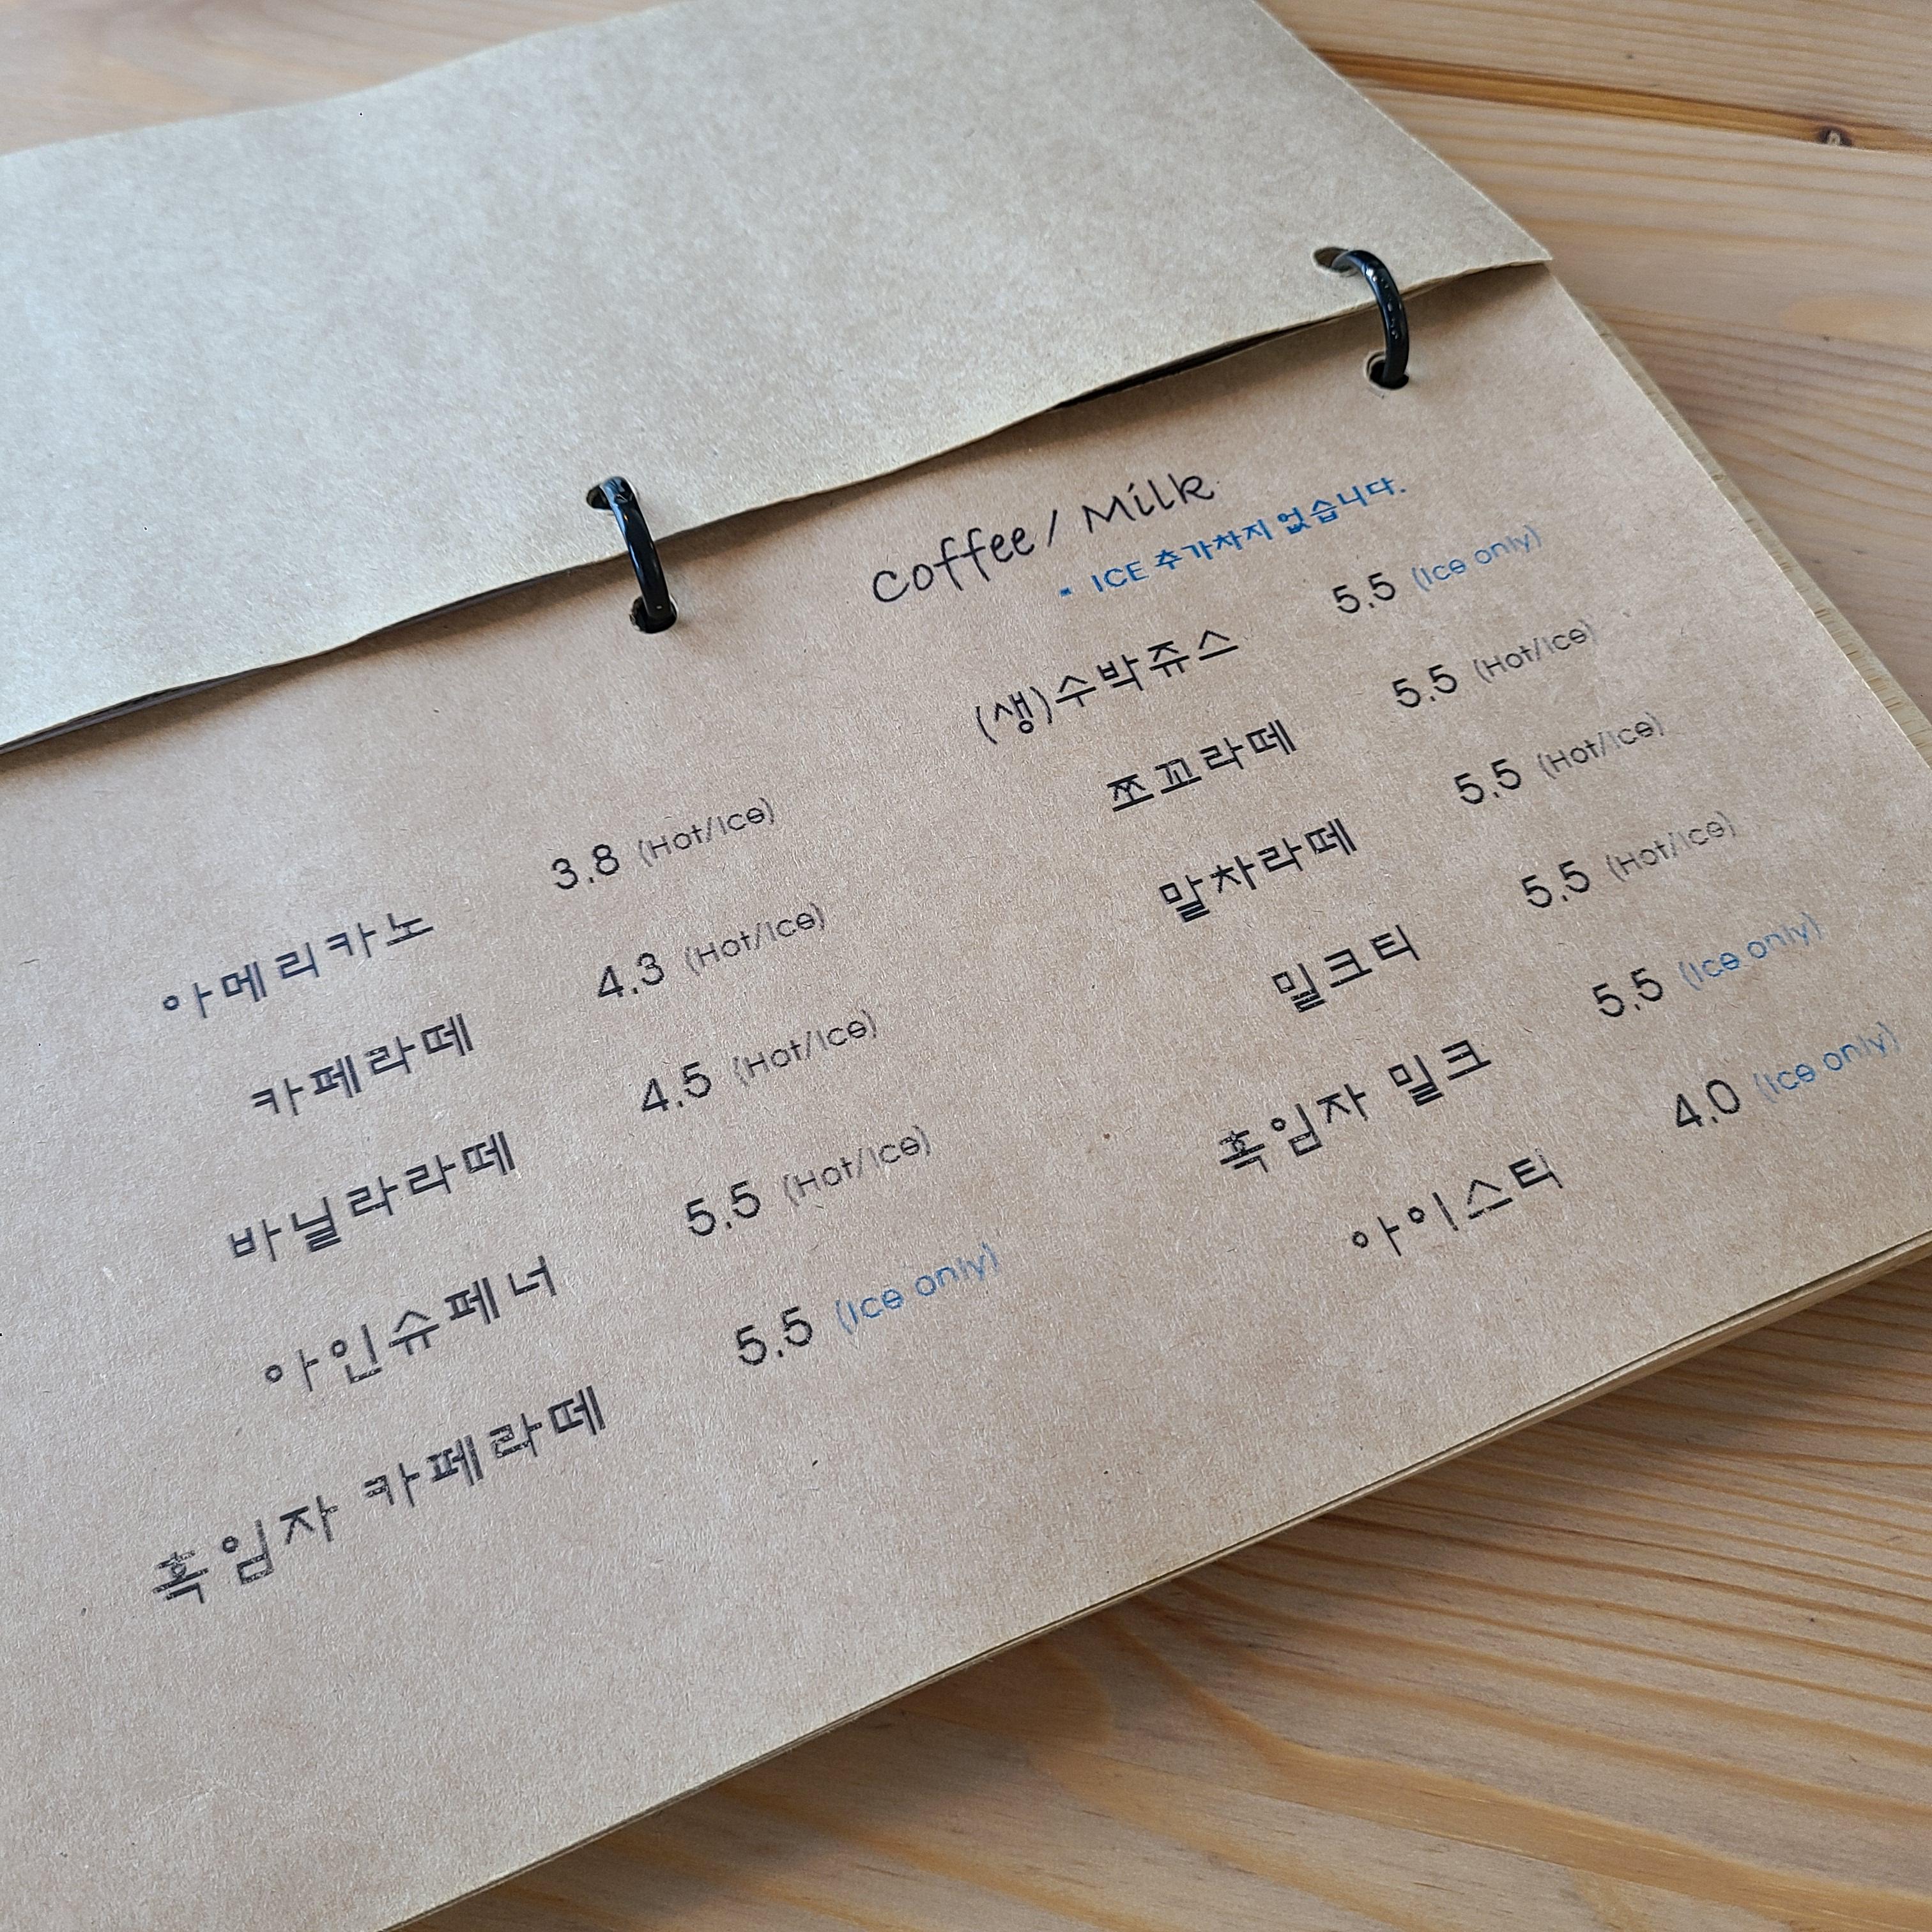 Coffee / Milk
* ICE 추가차지 없습니다.
아메리카노 3.8 (Hot/Ice)
카페라떼 4.3 (Hot/Ice)
바닐라라떼 4.5 (Hot/Ice)
아인슈페너 5.5 (Hot/Ice)
흑임자 카페라떼 5.5 (Ice only)
(생)수박쥬스 5.5 (Ice only)
쪼꼬라떼 5.5 (Hot/Ice)
말차라떼 5.5 (Hot/Ice)
밀크티 5.5 (Hot/Ice)
흑임자 밀크 5.5 (Ice only)
아이스티 4.0 (Ice only)